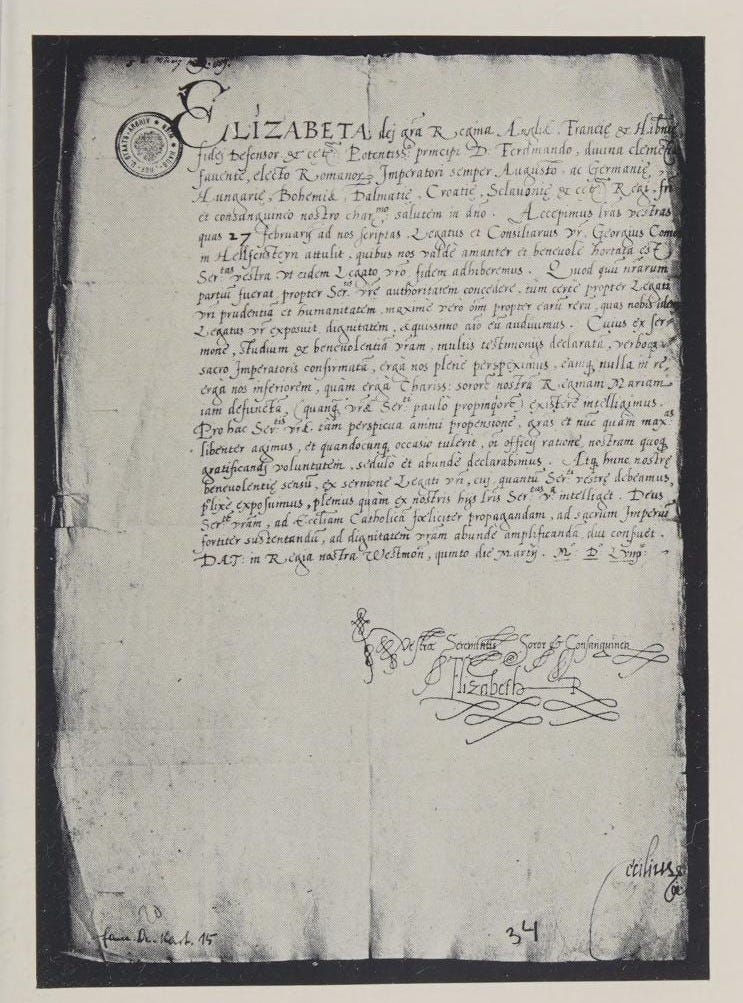 ELIZABETA dej gra Regina Angliæ Francię & Hibnię
fidej Defensor & cete Potentisso principi D Ferdinando, diuina clementia
fauente, electo Romanor Imperatori semper Augusto, ac Germanię,
Hungarię, Bohemiæ, Dalmatię, Croatię, Sclauonię & cete Regi, fri
et consanguineo nostro charmo salutem in dno. Accepimus lras vestras
quas 27 februarij ad nos scriptas Legatus et Consiliarius vr Georgius Comes
in Helfensteyn attulit, quibus nos valdè amanter et beneuolè hortata est
Sertas vestra vt eidem Legato vro, fidem adhiberemus. Quod qui nrarum
partiu fuerat, propter Sertis vrę authoritatem concedere, tum certè propter Legati
vri prudentia et humanitatem, maximè vero om propter earu reru, quas nobis idem
Legatus vr exposuit, dignitatem, æquissimo aio eu audiuimus. Cuius ex ser-
mone, studium & beneuolentia vram, multis testimonijs declarata, verboq
sacro Imperatoris confirmata, ergà nos plenè perspeximus, eamq nulla in re
erga nos inferiorem, quam ergà Chariss: sorore nostra Reginam Mariam
iam defuncta, (quanq vræ Serti paulò propinqiore) existere intelligimus.
Pro hac Sertis vræ tam perspicua animi propensione, gras et nuc quàm maxas
libenter agimus, et quandocunq occasio tulerit, oi officij ratione, nostram quoq
gratificandj voluntatem, sedulò et abundè declarabimus. Atq hunc nostrę
beneuolentię sensu, ex sermone Legati vri, cuj quantu Serti vestrę debeamus,
plixè exposuimus, plenius quàm ex nostris hijs lris Sertas va intelliget. Deus
Serte vram, ad Ecclesiam Catholica fœliciter propagandam, ad sacrum Imperiu
fortiter sustentandu, ad dignitatem vram abundè amplificanda, diu conseruet.
DAT: in Regia nostra Westmon, quinto die Martij. Mo: Do Lviijo:
Vestræ Serenitatis Soror & Consanguinea
Elizabeth R
Cecilius
34
15